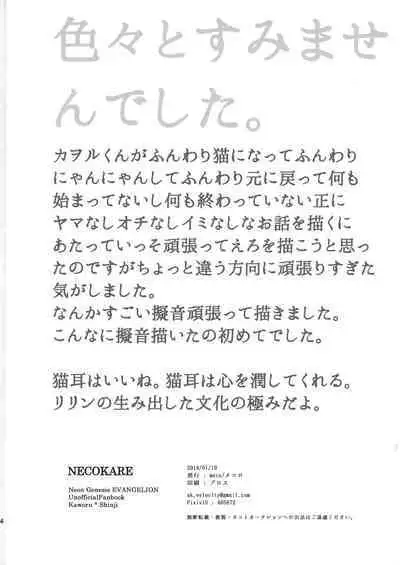 色々とすみませ
んでした。
カヲルくんがふんわり猫になってふんわり
にゃんにゃんしてふんわり元に戻って何も
始まってないし何も終わっていない正に
ヤマなしオチなしイミなしなお話を描くに
あたっていっそ頑張ってえろを描こうと思っ
たのですがちょっと違う方向に頑張りすぎた
気がしました。
なんかすごい擬音頑張って描きました。
こんなに擬音描いたの初めてでした。
猫耳はいいね。猫耳は心を潤してくれる。
リリンの生み出した文化の極みだよ。
NECOKARE
Neon Genesis EVANGELION
UnofficialFanbook
Kaworu * Shinji
発行:
印刷: プロス
無断転載・複製・ネットオークションへの出品はご遠慮ください。
4